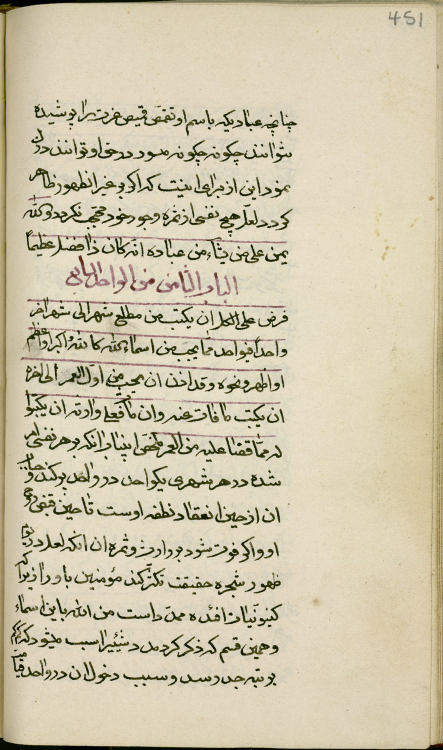 451
چنانچه عبادیکه باسم او تقمص قمیص عزت را پوشیده
نتوانند چگونه چگونه میشود در حق او توانند درک
نمود این از برای اینست که اگر بغیر انظهور ظاهر
گردد لعل هیچ نفسی از ثمره وجود خود محتجب نگردد والله
یمن علی من یشاء من عباده انه کان ذا فضل عظیما
الباب الثامن من الواحد
فرض علی الکل ان یکتب من مطلع شهر الی شهر اخر
واحدا فواحد مما یحب من اسماء الله کالله اکبر او اعظم
او اظهر و نحوه وقد اذن ان یحسب من اول العمر الی اخره
ان یکتب ما فات عنه وان ما فعل وارثه ان یکتبوا
له مما قضا علیه من العمر ملخص این باب انکه بر هر نفسی امر
شده در هر شهری یکواحد در واحد بوکند و
ان از حین انعقاد نطفه اوست تا حین قبض روح
او و اگر فوت شود بر وارث و ثمره ان انکه لعل در یوم
ظهور شجره حقیقت تکثر کند مؤمنین باو را زیرا که
کینونیات افئده ممد است من الله باین اسماء
و همین قسم که ذکر کرد مدد شیئ را سبب میشود که
برتبه حد رسد و سبب دخول ان در واحد